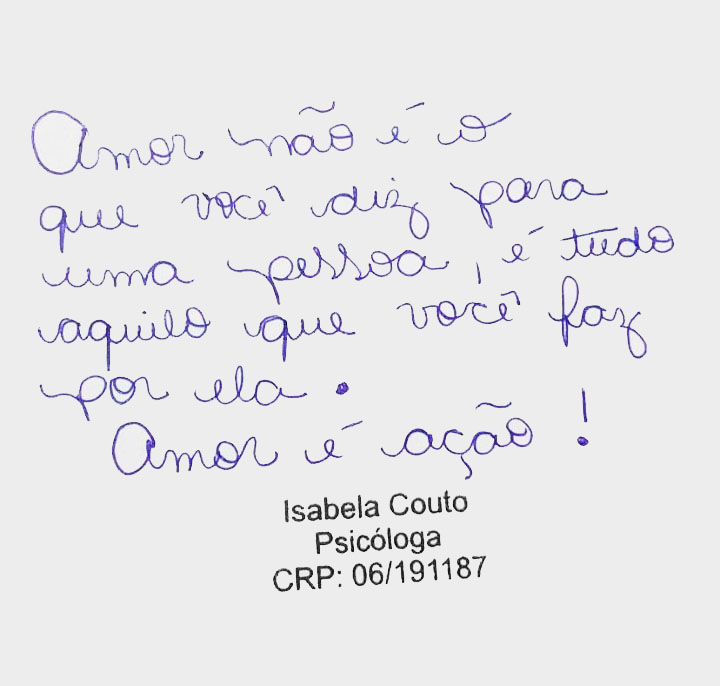 Amor não é o
que você diz para
uma pessoa, é tudo
aquilo que você faz
por ela.
Amor é ação!
Isabela Couto
Psicóloga
CRP: 06/191187